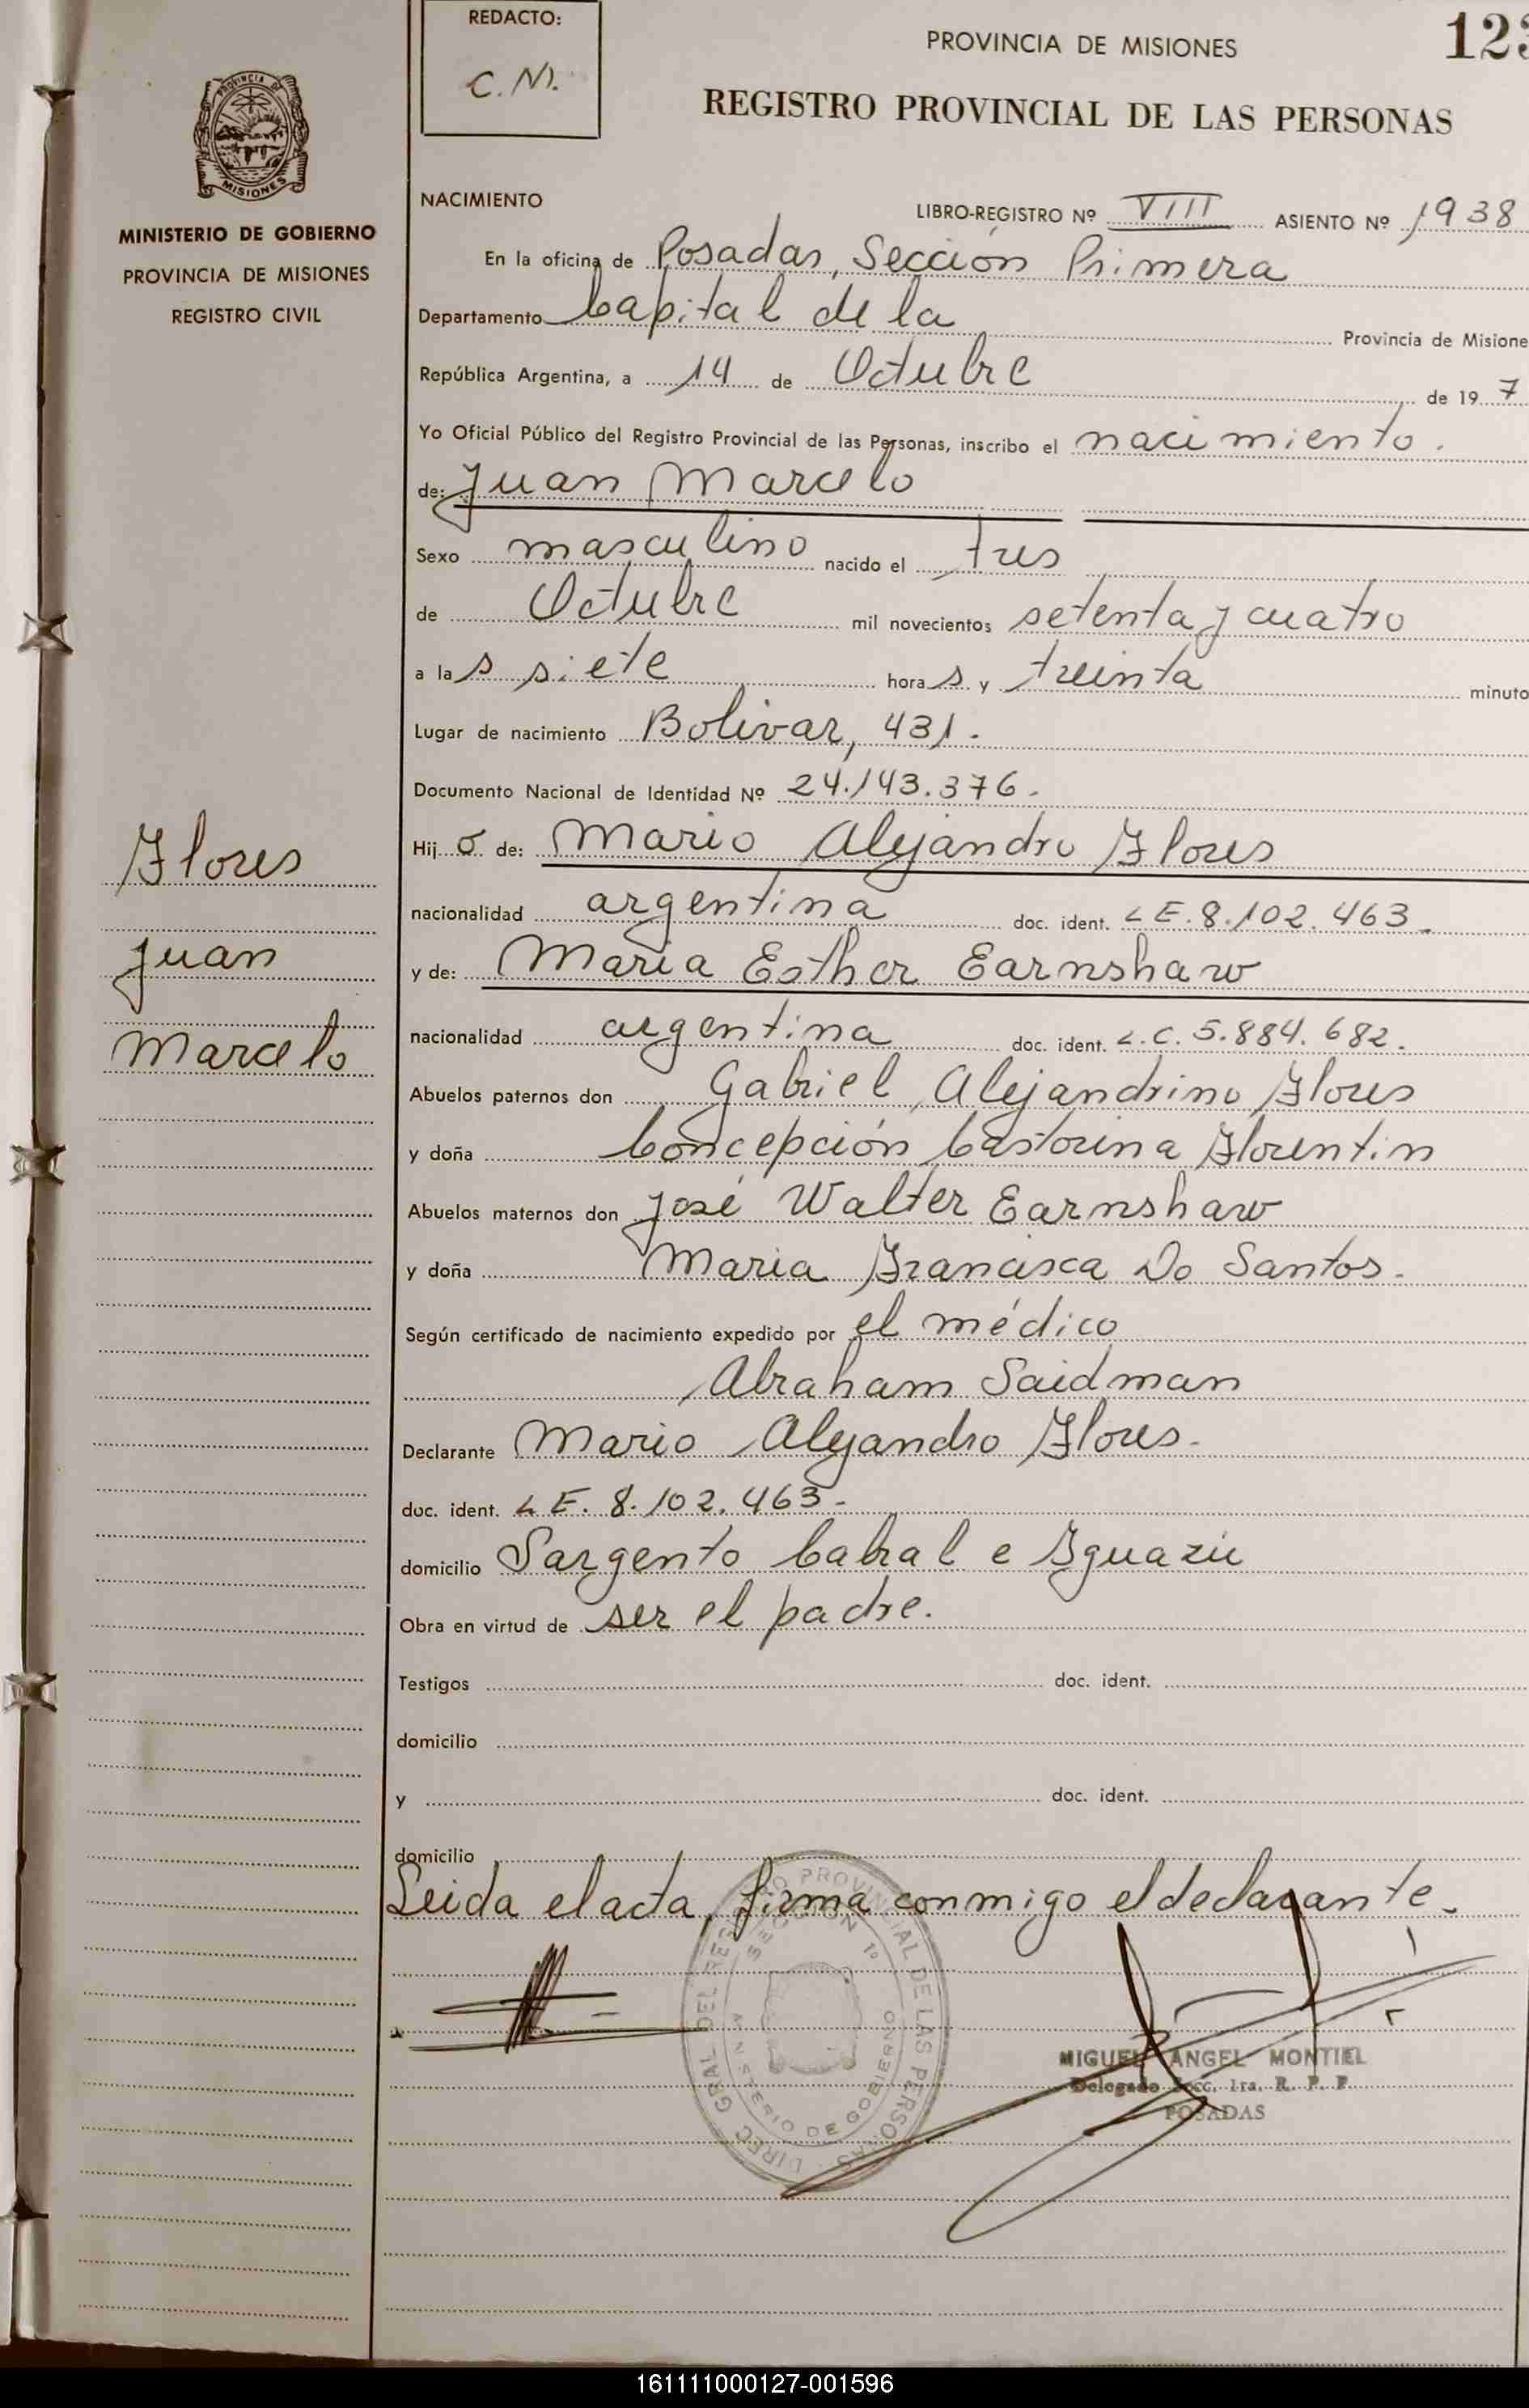 REDACTO:
C. N.
PROVINCIA DE MISIONES
123
REGISTRO PROVINCIAL DE LAS PERSONAS
MISIONES
MINISTERIO DE GOBIERNO
PROVINCIA DE MISIONES
REGISTRO CIVIL
NACIMIENTO
LIBRO-REGISTRO Nº VIII ASIENTO Nº 1938
En la oficina de Posadas, Sección Primera
Departamento Capital de la Provincia de Misione
República Argentina, a 14 de Octubre de 19 7
Yo Oficial Público del Registro Provincial de las Personas, inscribo el nacimiento.
de: Juan Marcelo
Sexo masculino nacido el tres
de Octubre mil novecientos setenta y cuatro
a la s siete hora s y treinta minuto
Lugar de nacimiento Bolivar, 431.
Documento Nacional de Identidad Nº 24.143.376.
Hij o de: Mario Alejandro Flores
nacionalidad argentina doc. ident. LE. 8.102.463.
y de: Maria Esther Earnshaw
nacionalidad argentina doc. ident. L.C. 5.884.682.
Abuelos paternos don Gabriel Alejandrino Flores
y doña Concepción Castorina Florentin
Abuelos maternos don José Walter Earnshaw
y doña Maria Francisca Do Santos.
Según certificado de nacimiento expedido por el médico
Abraham Saidman
Declarante Mario Alejandro Flores.
doc. ident. LE. 8.102.463.
domicilio Sargento Cabral e Iguazú
Obra en virtud de ser el padre.
Testigos doc. ident.
domicilio
y doc. ident.
domicilio
Leida el acta, firma conmigo el declarante.
Flores
Juan
Marcelo
DIREC. GRAL. DEL REGISTRO PROVINCIAL DE LAS PERSONAS
SECCION 1º
MINISTERIO DE GOBIERNO
MIGUEL ANGEL MONTIEL
Delegado Secc. 1ra. R. P. P.
POSADAS
161111000127-001596